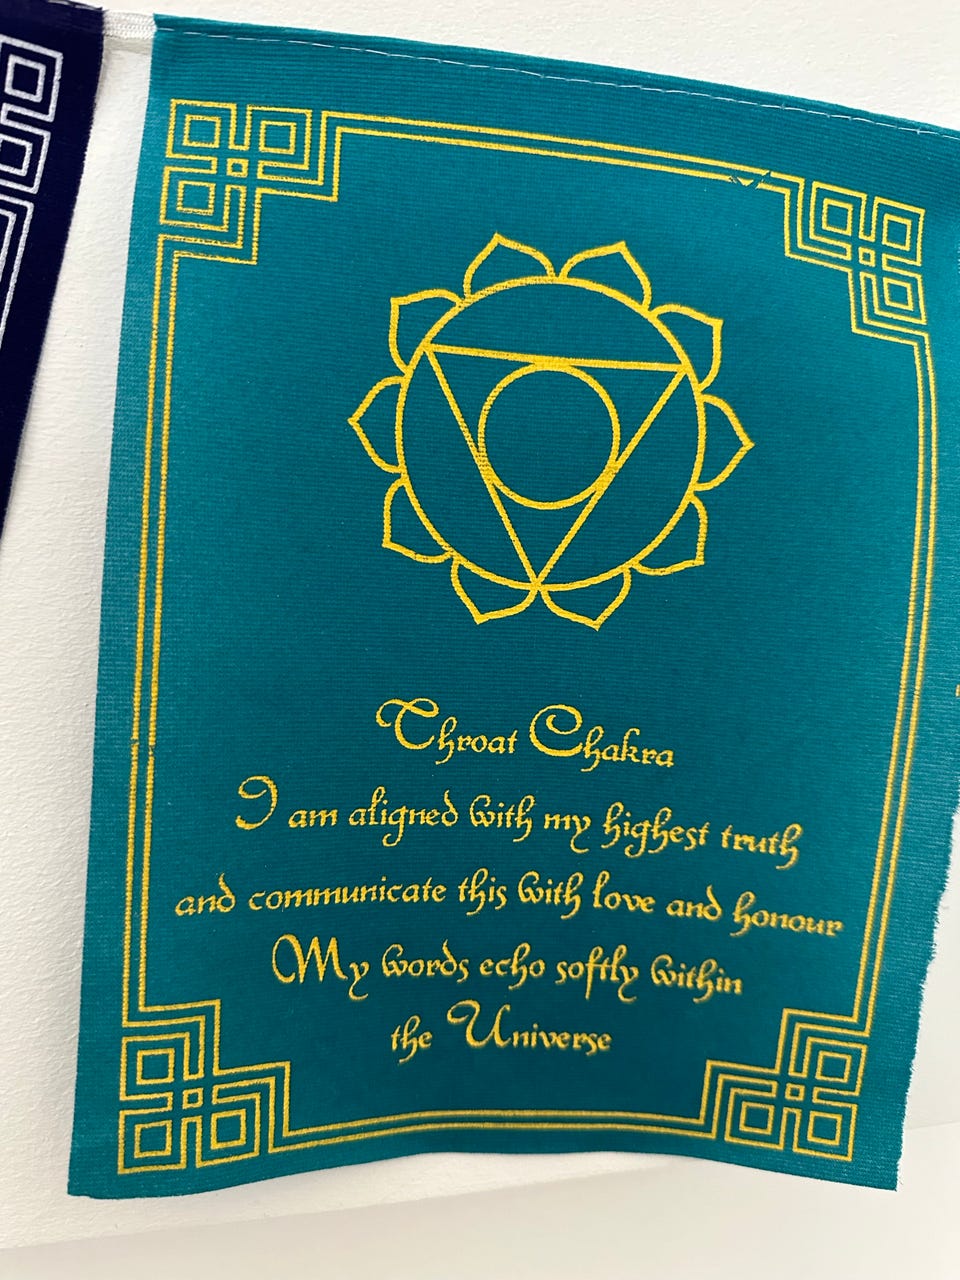 Throat Chakra
I am aligned with my highest truth
and communicate this with love and honour
My words echo softly within
the Universe